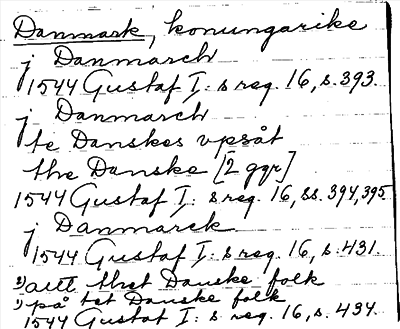 Danmark, konungarike
j Danmarch
1544 Gustaf I: s reg. 16, s. 393.
j Danmarch
te Danskes vpsåt
the Danske [2 ggr]
1544 Gustaf I: s reg. 16, ss. 394, 395
j Danmarck
1544 Gustaf I: s reg. 16, s. 431.
2) autt thet Danske folk
1) på tet Danske folk
1544 Gustaf I: s reg. 16, s. 434.